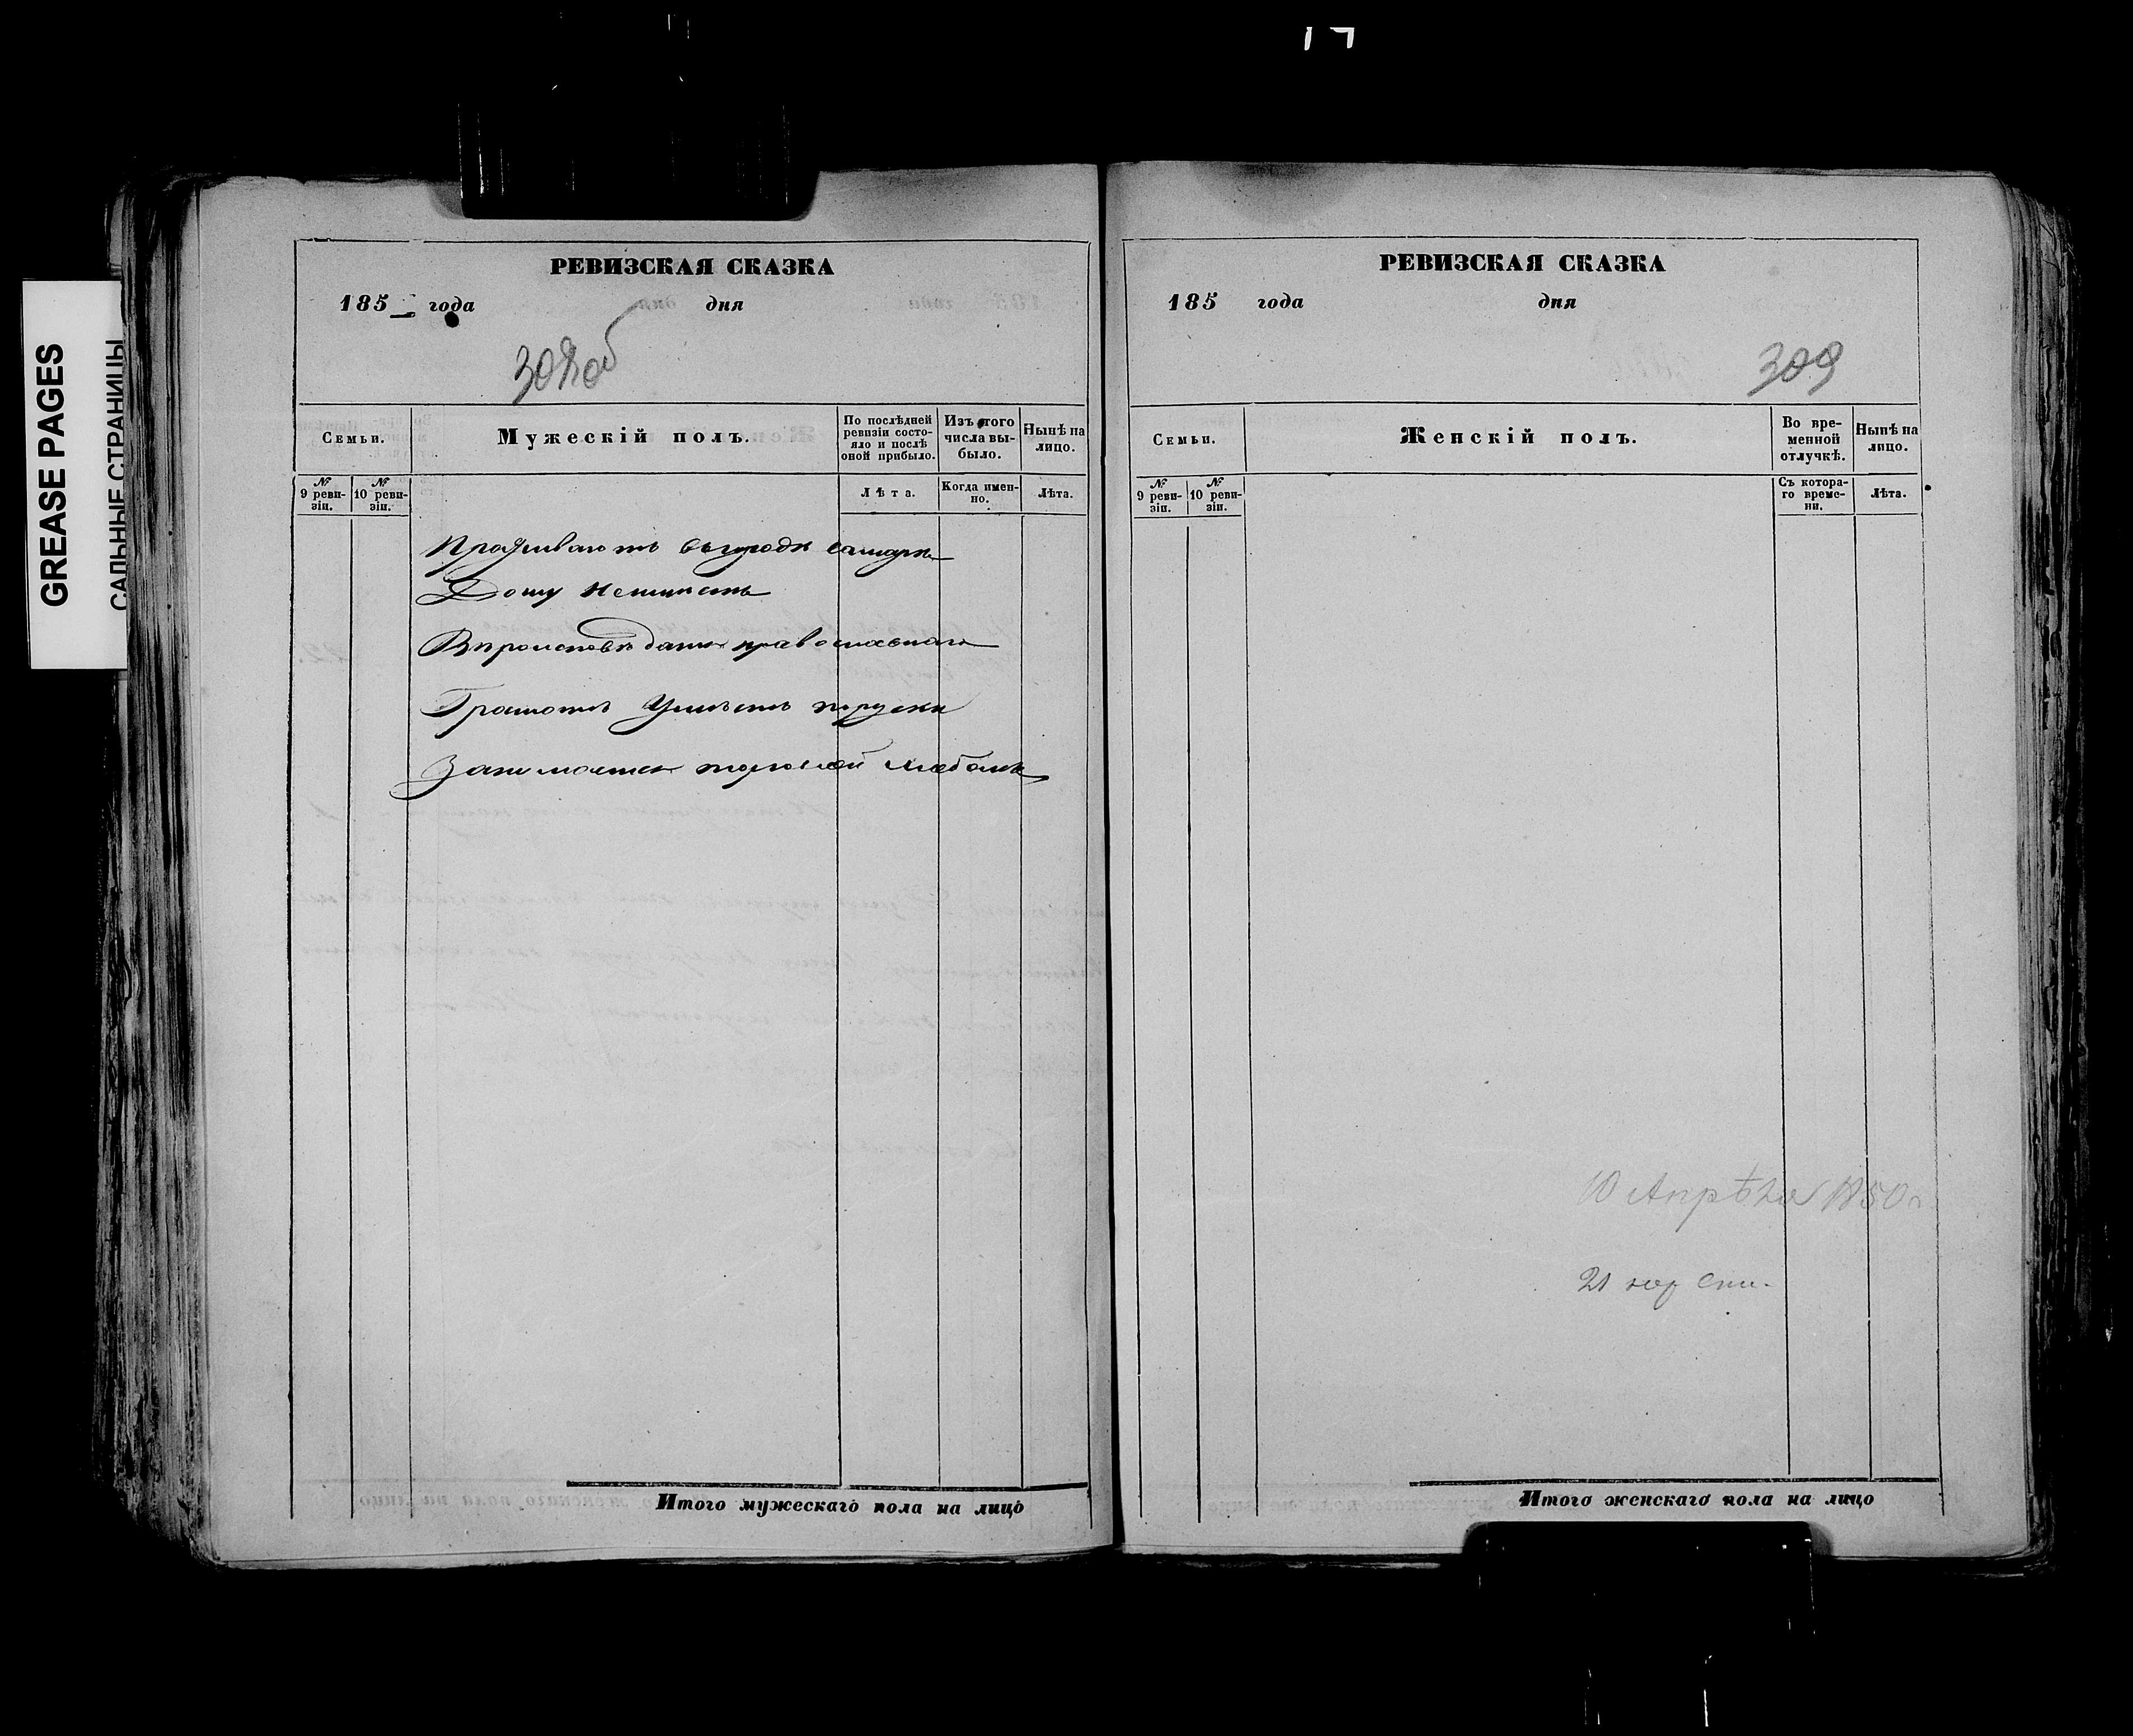 GREASE PAGES
САЛЬНЫЕ СТРАНИЦЫ
РЕВИЗСКАЯ СКАЗКА
185 года дня
308об
Семьи.
Мужескій полъ.
По послѣдней ревизіи состояло и послѣ оной прибыло.
Изъ того числа выбыло.
Нынѣ на лицо.
№ 9 ревизіи.
№ 10 ревизіи.
Лѣта.
Когда именно.
Лѣта.
Проживаютъ въ городѣ Самарѣ
Дому Неимѣетъ
Вѣроисповѣданія православнаго
Грамотѣ Умѣетъ поруски
Занимается торговлей хлебомъ
Итого мужескаго пола на лицо
РЕВИЗСКАЯ СКАЗКА
185 года дня
309
Семьи.
Женскій полъ.
Во временной отлучкѣ.
Нынѣ на лицо.
№ 9 ревизіи.
№ 10 ревизіи.
Съ котораго времени.
Лѣта.
10 Апрѣля 1850 г
21
Итого женскаго пола на лицо